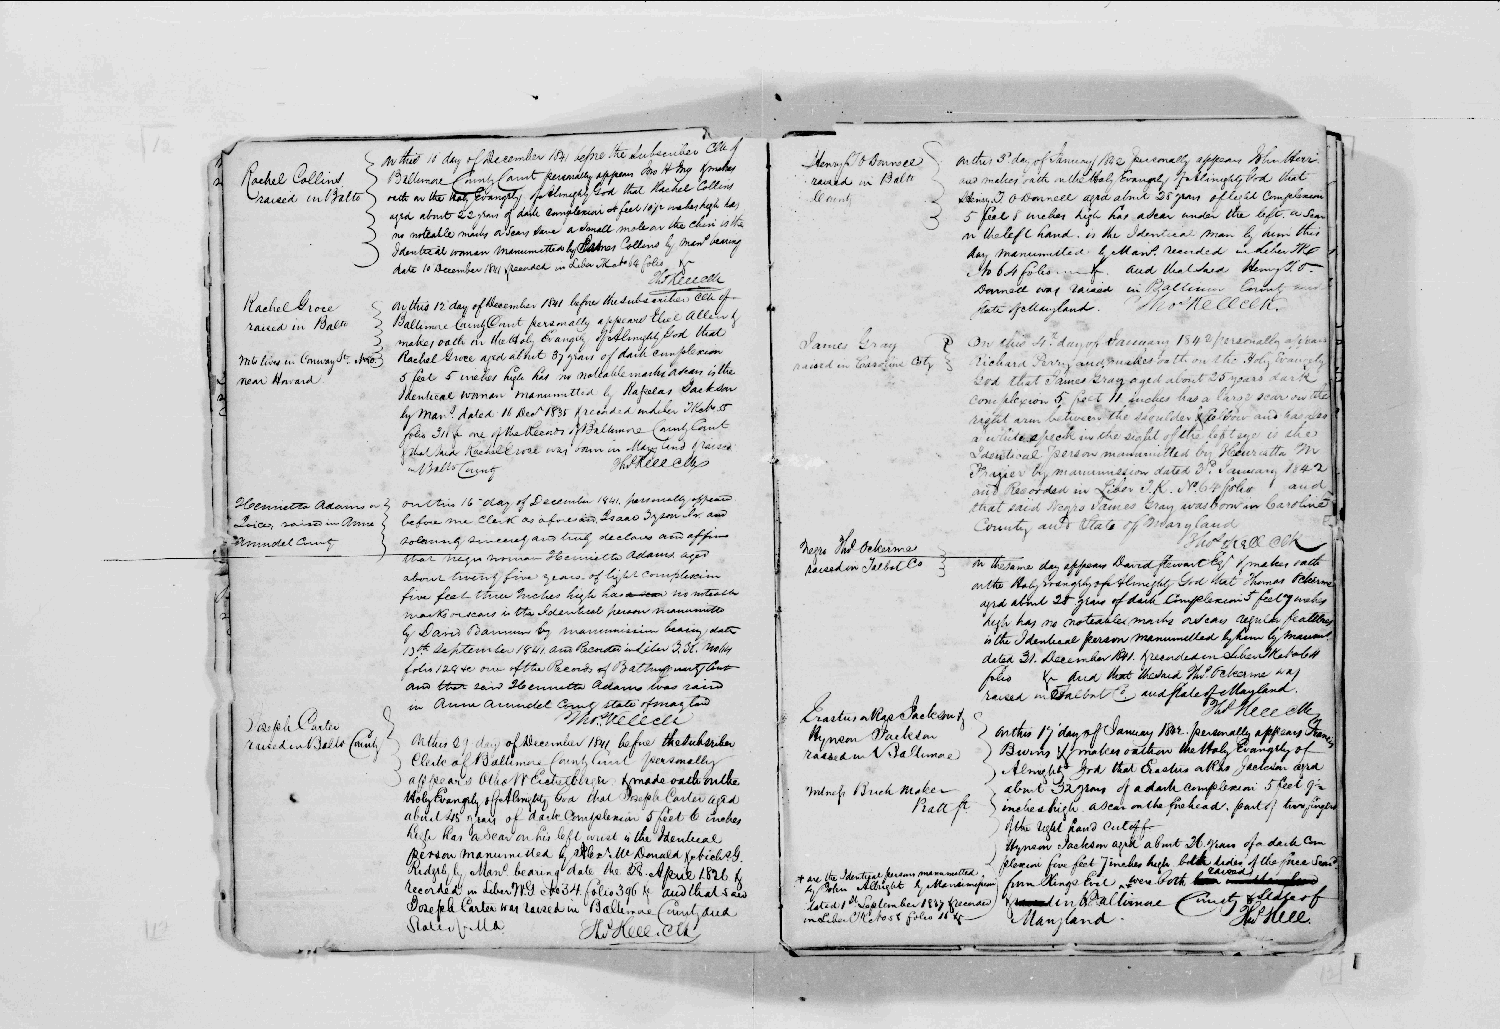 Rachel Collins
raised in Balto
on this 10 day of December 1841 before the Subscriber Clk of
Baltimore County Court personally appears &makes
oath on the Holy Evangely of Almighty God that Rachel Collins
aged about 22 years of dark complexion 4 feet inches high has
no noteable marks or scars save a small mole on the chin is the
Identical woman manumitted by Collins by Man bearing
date 10 December 1841 &recorded in Liber folio &c
Thos Kell Clk
Rachel Groce
raised in Balto
lives in Conway St
near Howard
on this 12 day of December 1841 before the subscriber Clk of
Baltimore County Court personally appears Allen &
makes oath on the Holy Evangely of Almighty God that
Rachel Groce aged about 37 years of dark complexion
5 feet 5 inches high has no noteable marks or scars is the
Identical woman manumitted by Jackson
by Man. dated 11 Decr 1835 & recorded in Liber
folio 311 &c one of the Records of Baltimore County Court
& that said Rachel was born in Maryland & raised
in Balto County
Thos Kell Clk
Henrietta Adams or
raised in Anne
Arundel County
on this 16 day of December 1841. personally appeared
before me Clerk as aforesaid, Isaac Tyson Jr. and
solemnly sincerely and truly declares and affirms
that negro woman Henrietta Adams aged
about twenty five years. of light complexion
five feet three Inches high has no noteable
marks or scars is the Identical person manumitted
by David Barnum by manumission bearing date
13th September 1841. and recorded in Liber
folio 128 &c one of the Records of Balto County Court
and that said Henrietta Adams was raised
in Anne Arundel County State of Maryland
Thos. Kell Clk
Joseph Carter
raised in Balto County
On this 29 day of December 1841, before the Subscriber
Clerk of Baltimore County Court personally
appears Otho W Eichelberger. & made oath on the
Holy Evangely of Almighty God that Joseph Carter aged
about 45 years of dark Complexion 5 feet 6 inches
high has a scar on his left wrist is the Identical
person manumitted by Alexr. McDonald & G.
Ridgely by Man. bearing date the 28. April 1826 &
recorded in Liber W.G No 34. folio 396 &c and that said
Joseph Carter was raised in Baltimore County and
State of Md
Thos Kell. Clk
Henry T. O Donnell
raised in Balto
County
on this 3d. day of January 1842 personally appears
and makes oath on the Holy Evangely of Almighty God that
Henry T. O Donnell aged about 25 years of light Complexion
5 feet 8 inches high has a scar under the left. a scar
on the left hand. is the Identical man by him this
day manumitted by Man. recorded in Liber
No 64 folio &c. and that said Henry T. O.
Donnell was raised in Baltimore County and
State of Maryland.
Thos Kell Clk.
James Gray
raised in Caroline Cty
On this 4th. day of January 1842 personally appears
Richard Perry and makes oath on the Holy Evangely
God that James Gray aged about 25 years dark
complexion 5 feet 11 inches has a large scar on the
right arm between the shoulder & elbow and has also
a white speck in the sight of the left eye is the
Identical person manumitted by Henrietta M
Frazier by manumission dated 3d. January 1842
and Recorded in Liber T.K. No. 64 folio and
that said Negro James Gray was born in Caroline
County and State of Maryland
Thos Kell Clk
Negro Thos Ockerme
raised in Talbot Co
on the same day appears David Stewart Esqr & makes oath
on the Holy Evangely of Almighty God that Thomas Ockerme
aged about 28 years of dark Complexion 5 feet 7 inches
high has no noteable marks or scars regular features
is the Identical person manumitted by him by manumn.
dated 31. December 1841. & recorded in Liber
folio &c and that the said Thos. Ockerme was
raised in Talbot Co and State of Maryland.
Thos Kell Clk
Erastus Jackson &
Wynson Jackson
raised in Baltimore
Witness Brick Maker
Pratt st
on this 17 day of January 1842. personally appears Francis
Burns & makes oath on the Holy Evangely of
Almighty God that Erastus Jackson aged
about 32 years of a dark complexion 5 feet
inches high. a scar on the forehead. part of two fingers
of the right hand cut off
Wynson Jackson aged about 26 years of a dark Com
plexion five feet 7 inches high both sides of the face Scarrd
from Kings Evil + were both raised
in Baltimore County & State of
Maryland.
Thos Kell.
+ are the Identical persons manumitted
by John Albright by Manumission
dated September 1837 & recorded
in Liber folio